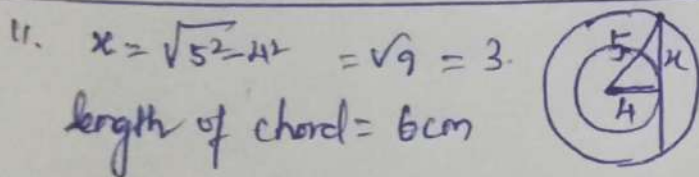 11. x = √5²-4² = √9 = 3.
length of chord = 6cm
5
x
4